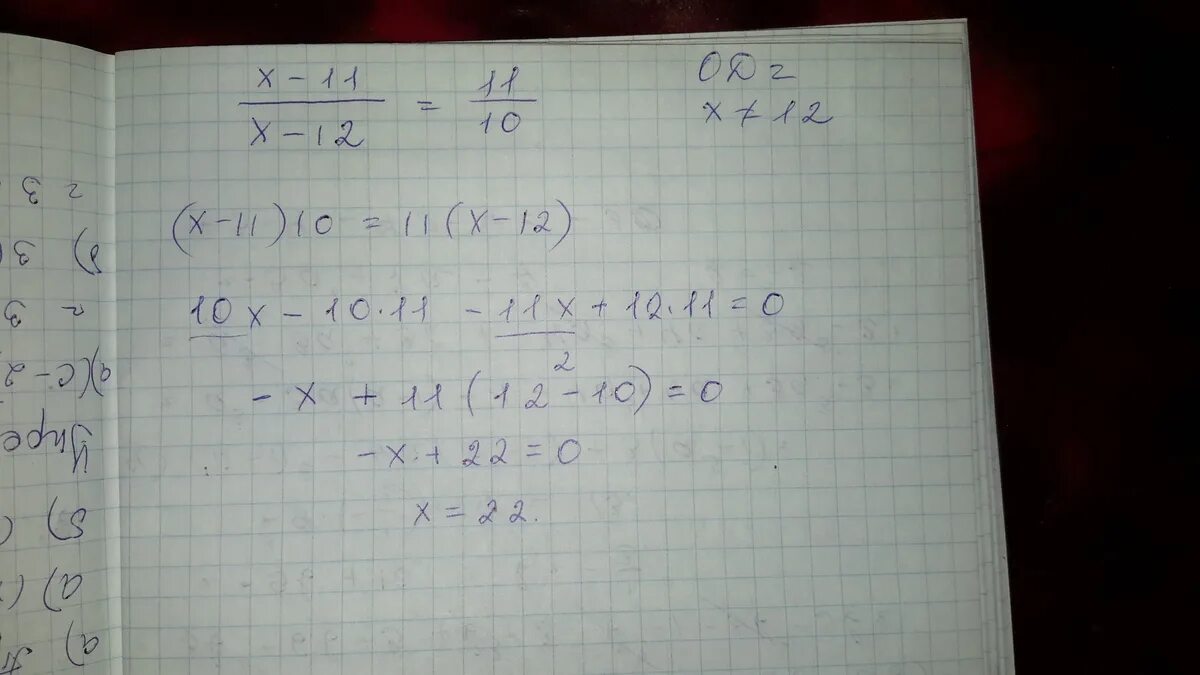 x - 11 / x - 12 = 11 / 10
ОД =
x ≠ 12
(x - 11) 10 = 11 (x - 12)
10x - 10·11 - 11x + 12·11 = 0
2
- x + 11 (12 - 10) = 0
- x + 22 = 0
x = 22.
= 3
б) 3(
= 3
а) (с - 2
Упре
б) (
а) (
а)